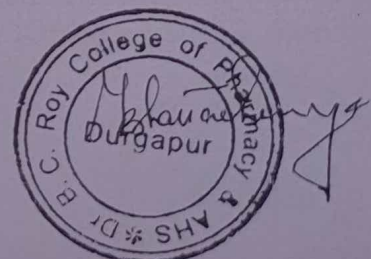 Dr B.C. Roy College of Pharmacy & AHS *
Durgapur